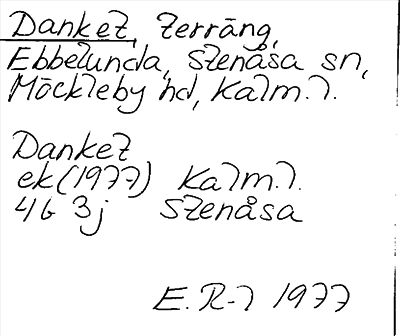 Danket, terräng,
Ebbelunda, Stenåsa sn,
Möckleby hd, Kalm.l.
Danket
ek(1977) Kalm.l.
4G 3j Stenåsa
E.R-l 1977